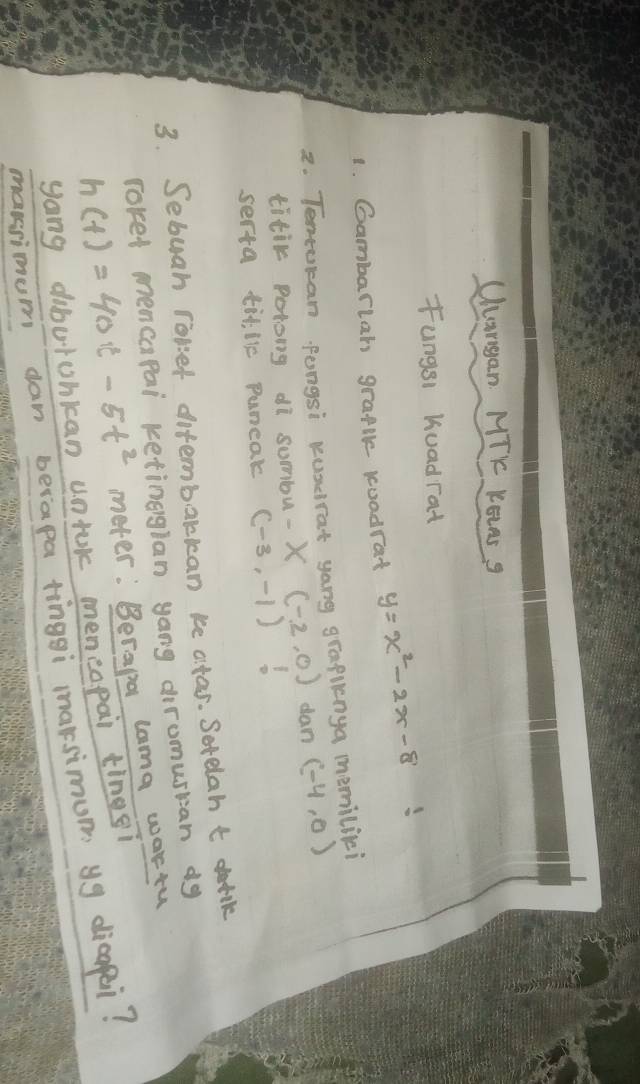 Ulangan MTK Kelas 9
Fungsi Kuadrat
1. Gambarlah grafik kuadrat y = x² - 2x - 8 !
2. Tentukan fungsi kuadrat yang grafiknya memiliki
titik potong di sumbu - X (-2,0) dan (-4,0)
serta titik puncak (-3,-1) !
3. Sebuah roket ditembakkan ke atas. Setelah t detik
roket mencapai ketinggian yang dirumuskan dg
h(t) = 40t - 5t² meter. Berapa lama waktu
yang dibutuhkan untuk mencapai tinggi
maksimum dan berapa tinggi maksimum yg dicapai ?